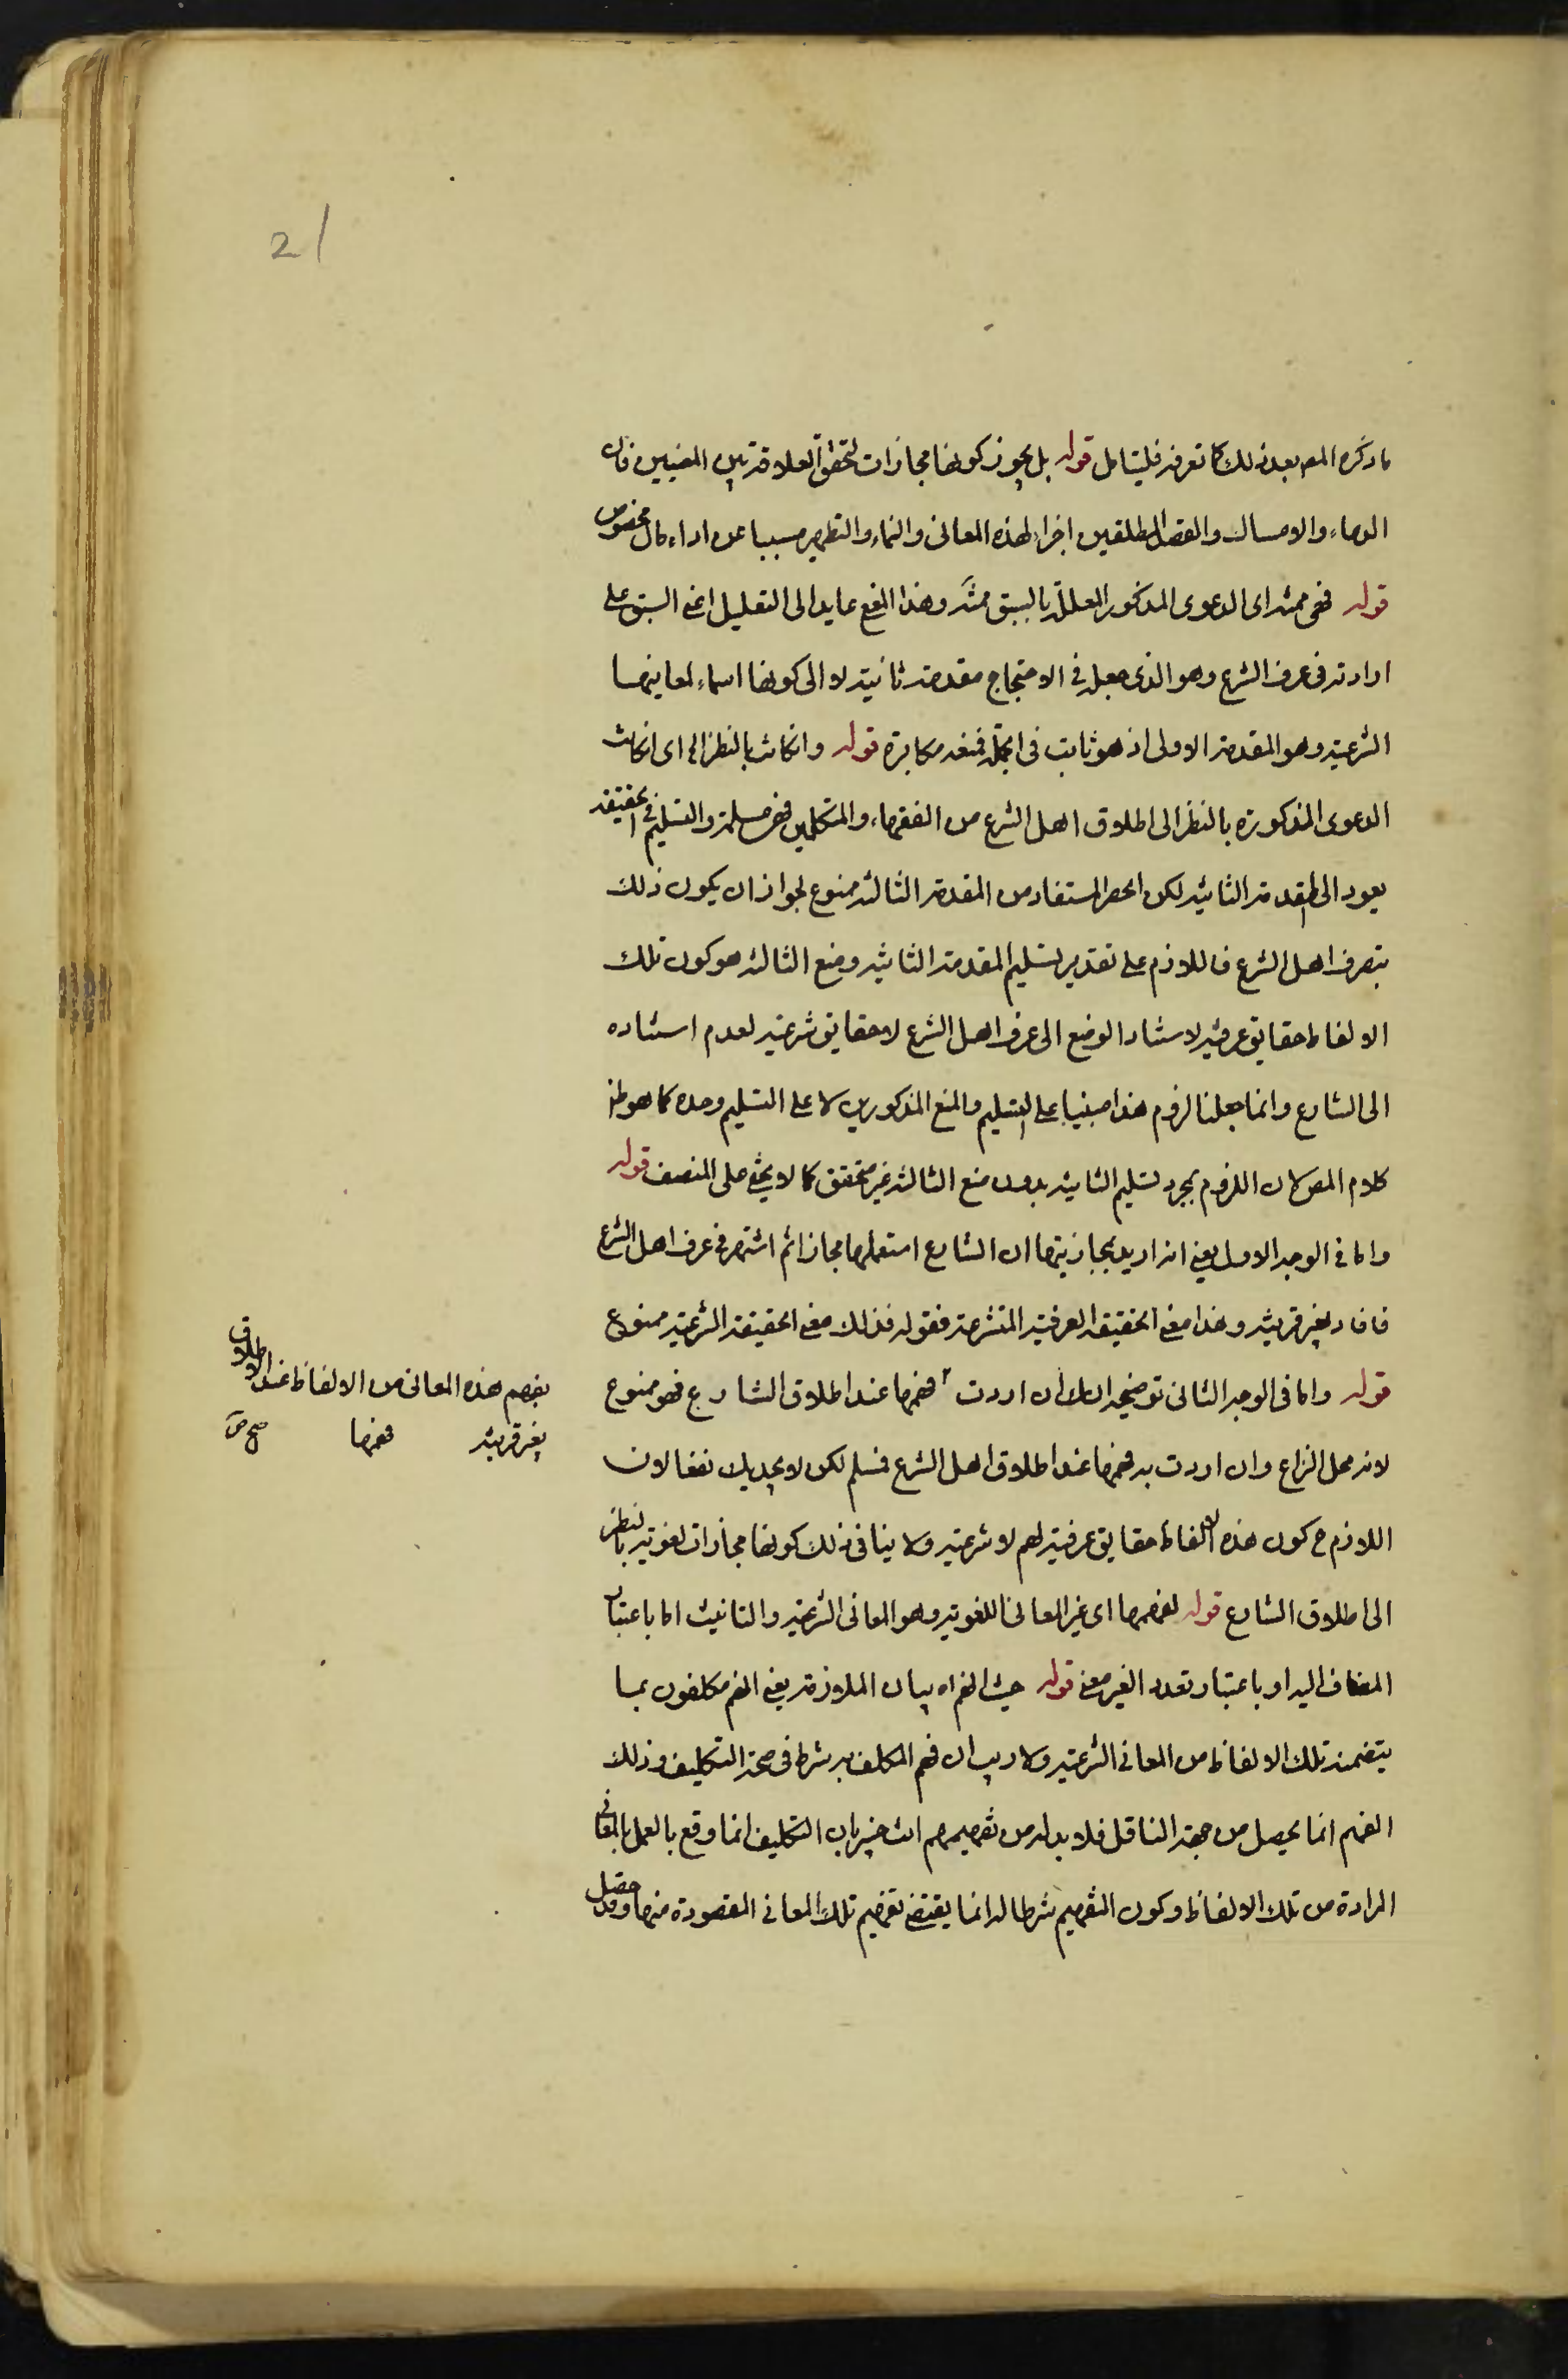 21
ما ذكره المص بعد ذلك كما تعرفه فليتامل قوله بل يجوز كونها مجازات لتحقق العلاقة بين المعنيين فان
الدعاء والامساك والقصد المطلقين اجزاء لهذه المعانى والنماء والتطهير مسببا عن اداء مال مخصوص
قوله فهى ممنوعة اى الدعوى المذكورة المعللة بالسبق ممنوعة وهذا المنع عايد الى التعليل اعنى السبق على
ارادته فى عرف الشرع وهو الذى جعل فى الاحتجاج مقدمة ثانية لا الى كونها اسماء لمعانيها
الشرعية وهو المقدمة الاولى اذ هو ثابت فى الجملة فمنعه مكابرة قوله وان كانت بالنظر الى اى ان كانت
الدعوى المذكورة بالنظر الى اطلاق اهل الشرع من الفقهاء والمتكلمين فهى مسلمة والتسليم فى الحقيقة
يعود الى المقدمة الثانية لكن الحصر المستفاد من المقدمة الثالثة ممنوع لجواز ان يكون ذلك
بتصرف اهل الشرع فاللازم على تقدير تسليم المقدمة الثانية ومنع الثالثة هو كون تلك
الالفاظ حقايق عرفية لاستناد الوضع الى عرف اهل الشرع لا حقايق شرعية لعدم استناده
الى الشارع وانما جعلنا لزوم هذا مبنيا على التسليم والمنع المذكورين لا على التسليم وحده كما هو ظ
كلام المص لان اللزوم بمجرد تسليم الثانية بدون منع الثالثة غير متحقق كما لا يخفى على المنصف قوله
واما فى الوجه الاول يعنى انه اريد بمجازيتها ان الشارع استعملها مجازا ثم اشتهر فى عرف اهل الشرع
فافاد بغير قرينة وهذا معنى الحقيقة العرفية المتشرعة فقوله فذلك معنى الحقيقة الشرعية ممنوع
قوله واما فى الوجه الثانى توضيحه انك ان اردت فهمها عند اطلاق الشارع فهو ممنوع
يفهم هذه المعانى من الالفاظ عند الاطلاق
بغير قرينة فهمها صح
لانه محل النزاع وان اردت به فهمها عند اطلاق اهل الشرع فمسلم لكن لا يجديك نفعا لان
اللازم ح كون هذه الالفاظ حقايق عرفية لهم لا شرعية ولا ينافى ذلك كونها مجازات لغوية بالنظر
الى اطلاق الشارع قوله لفهمها اى غير المعانى اللغوية وهو المعانى الشرعية والتانيث اما باعتبار
المضاف اليه او باعتبار تعدد الغير معنى قوله حيث انهم اه بيان الملازمة يعنى انهم مكلفون بما
يتضمنه تلك الالفاظ من المعانى الشرعية ولا ريب ان فهم المكلف به شرط فى صحة التكليف وذلك
الفهم انما يحصل من جهة الناقل فلا بد له من تفهيمهم انت خبير بان التكليف انما وقع بالعمل بالمعانى
المرادة من تلك الالفاظ وكون التفهيم شرطا له انما يقتضى تفهيم تلك المعانى المقصودة منها وقد حصل